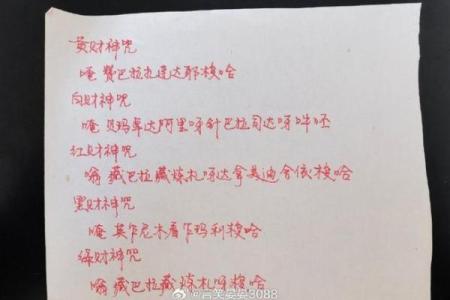 黄财神咒
唵 賛巴拉扎连达耶梭哈
白财神咒
唵 贝玛卓达阿里呀针巴拉司达呀吽呸
红财神咒
嗡 藏巴拉藏炼札呀达拿美迪舍依梭哈
黑财神咒
唵 英乍尼木看乍玛利梭哈
绿财神咒
嗡 藏巴拉藏炼札呀梭哈
@言笑晏晏3088